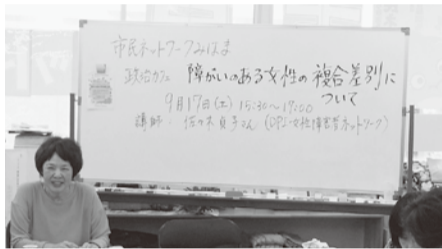 市民ネットワークみはま
政治カフェ 障がいのある女性の複合差別に
ついて
9月17日(土) 15:30〜17:00
講師: 佐々木貞子さん (DPI女性障害者ネットワーク)